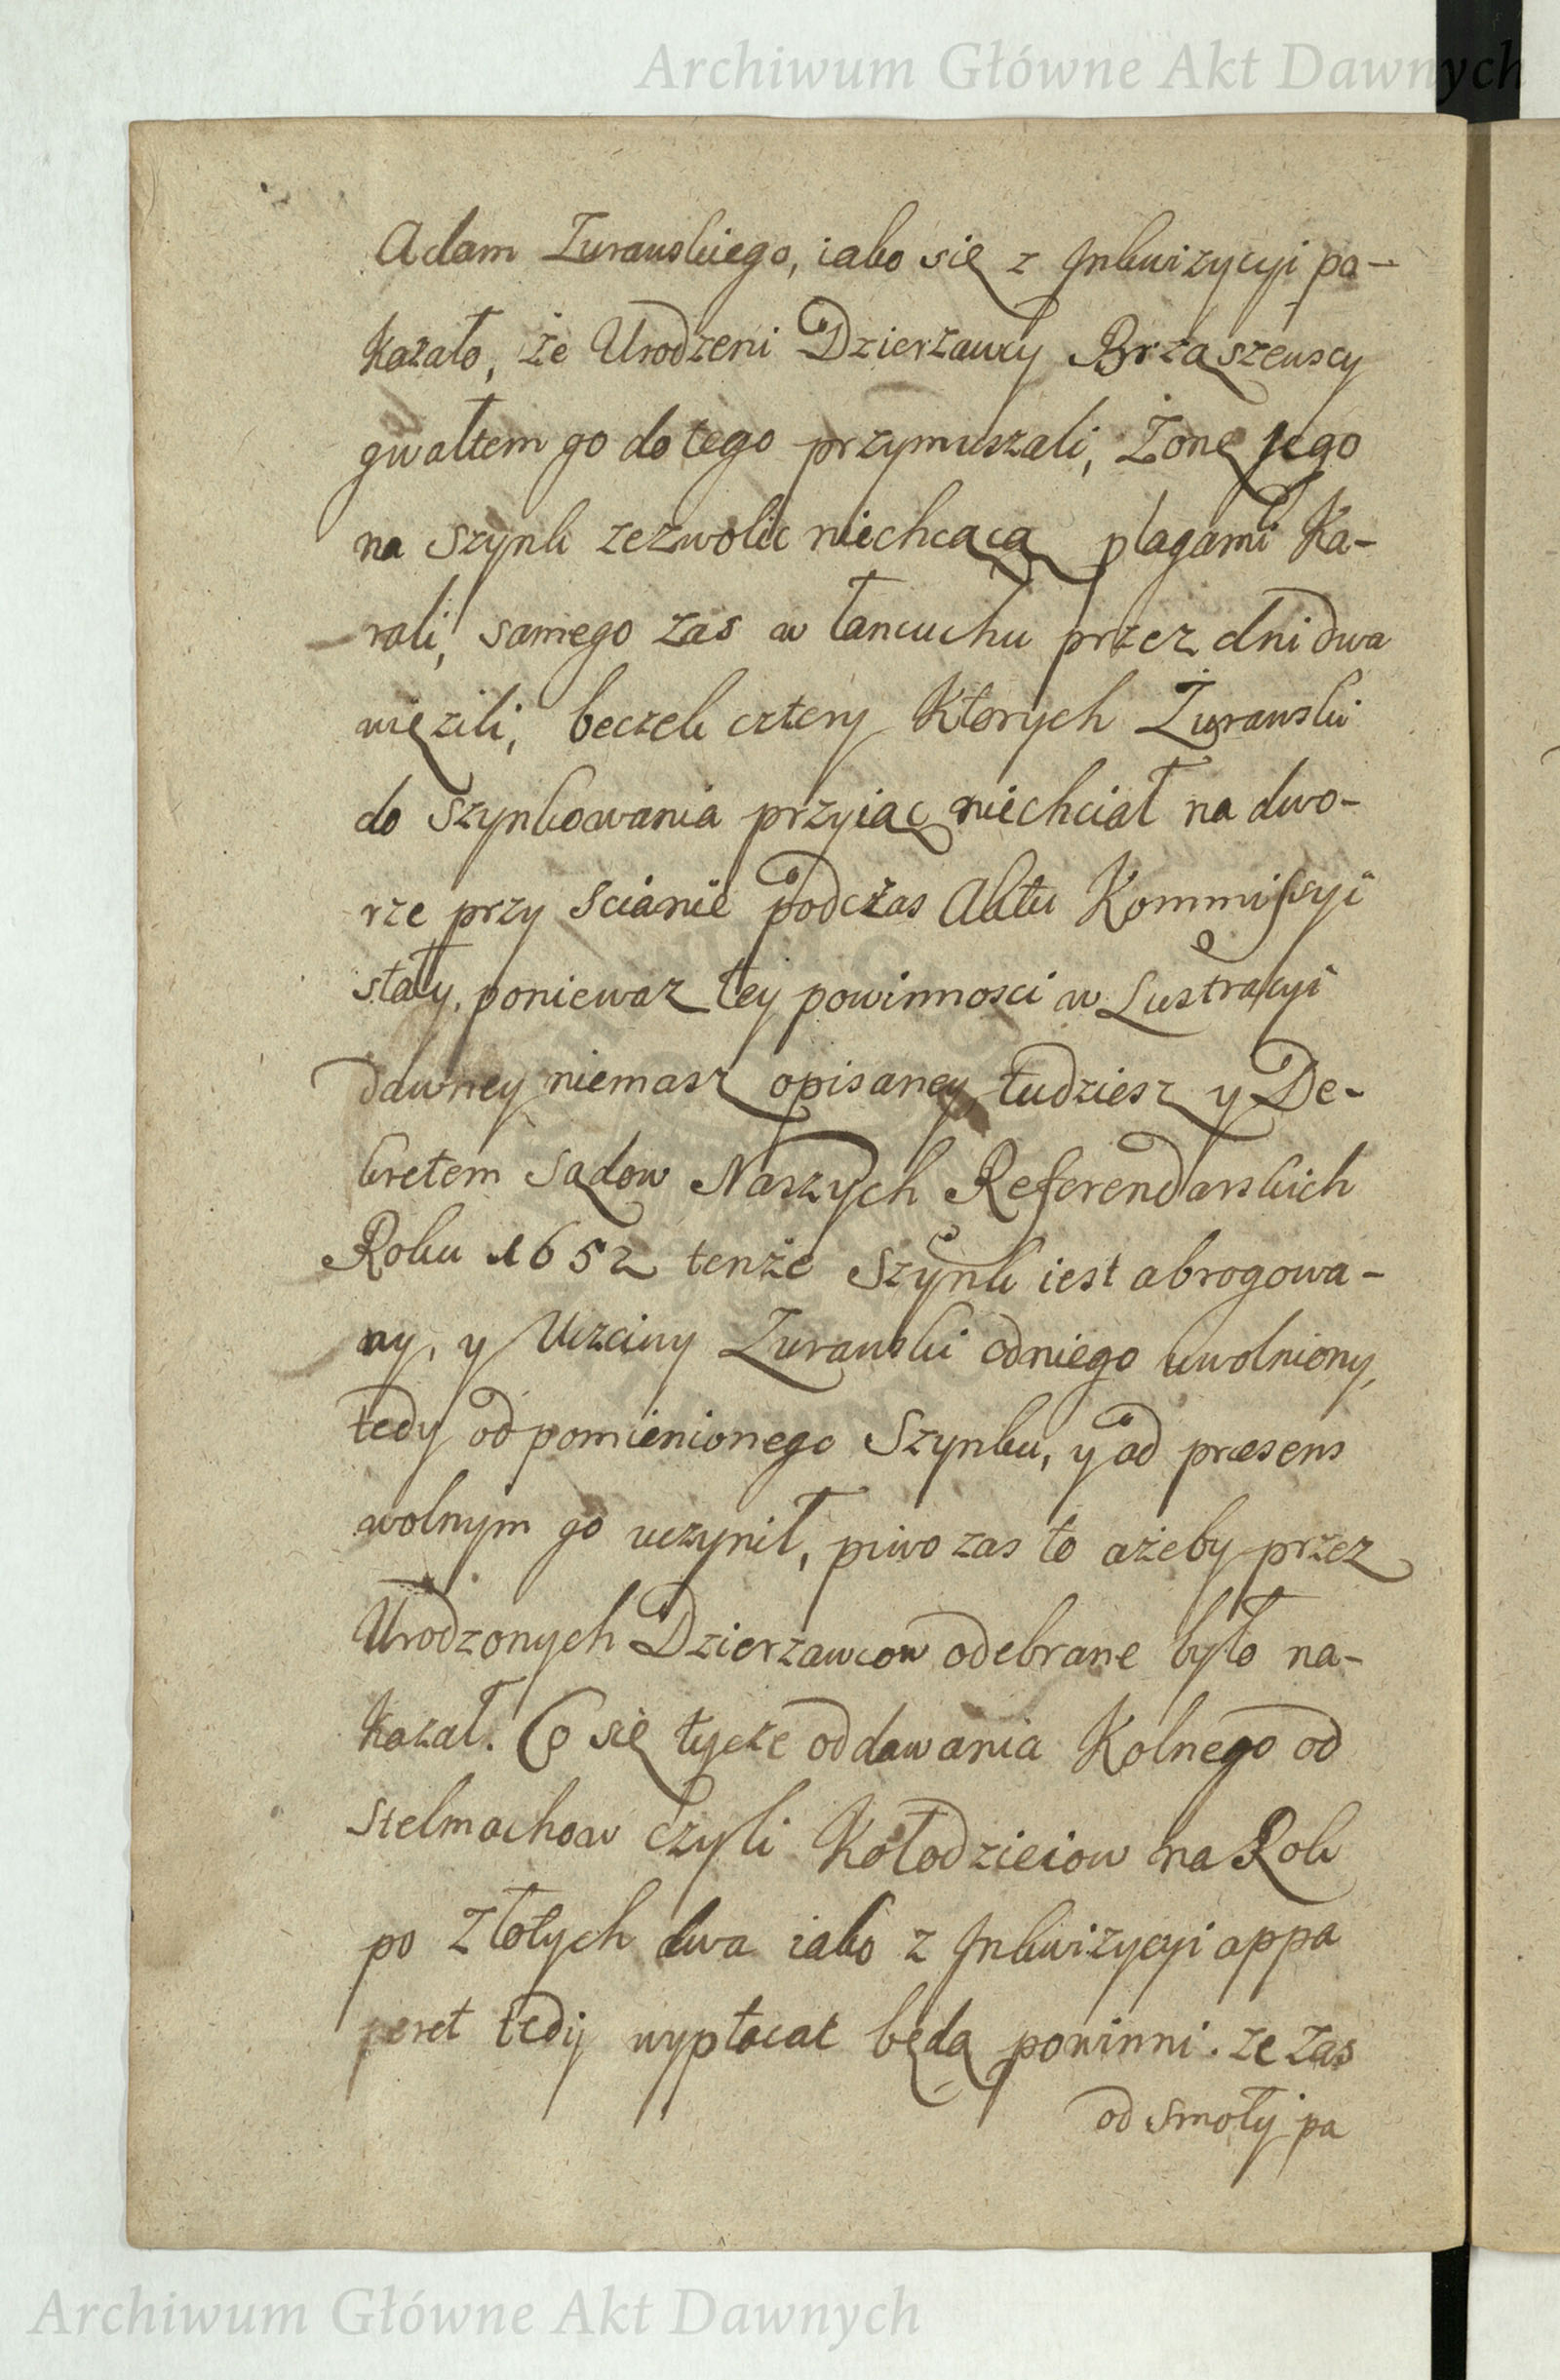 Archiwum Główne Akt Dawnych
Adam Zurawskiego, iako się z Inkwizycyi po-
kazało, że Urodzeni Dzierzawcy Brząszewscy
gwałtem go do tego przymuszali, Żonę jego
na Szynk zezwolic niechcącą plagami Ka-
rali, samego zas w łancuchu przez dni dwa
więzili, beczek cztery Ktorych Żurawski
do Szynkowania przyiąc niechciał na dwo-
rze przy Scianie podczas Aktu Kommissyi
stały, poniewaz tey powinnosci w Lustracyi
dawney niemasz opisaney, tudziesz y De-
kretem Sądow Naszych Referendarskich
Roku 1652 tenże Szynk iest abrogowa-
ny, y Uczciwy Zurawski od niego uwolniony,
tedy od pomienionego Szynku, y ad præsens
wolnym go uczynił, piwo zas to ażeby przez
Urodzonych Dzierzawcow odebrane było na-
kazał. Co się tycze oddawania Kolnego od
Stelmachow czyli Kołodzieiow na Rok
po Złotych dwa iako z Inkwizycyi appa
reret tedy wypłacac będą powinni. ze zas
od smoły pa
Archiwum Główne Akt Dawnych